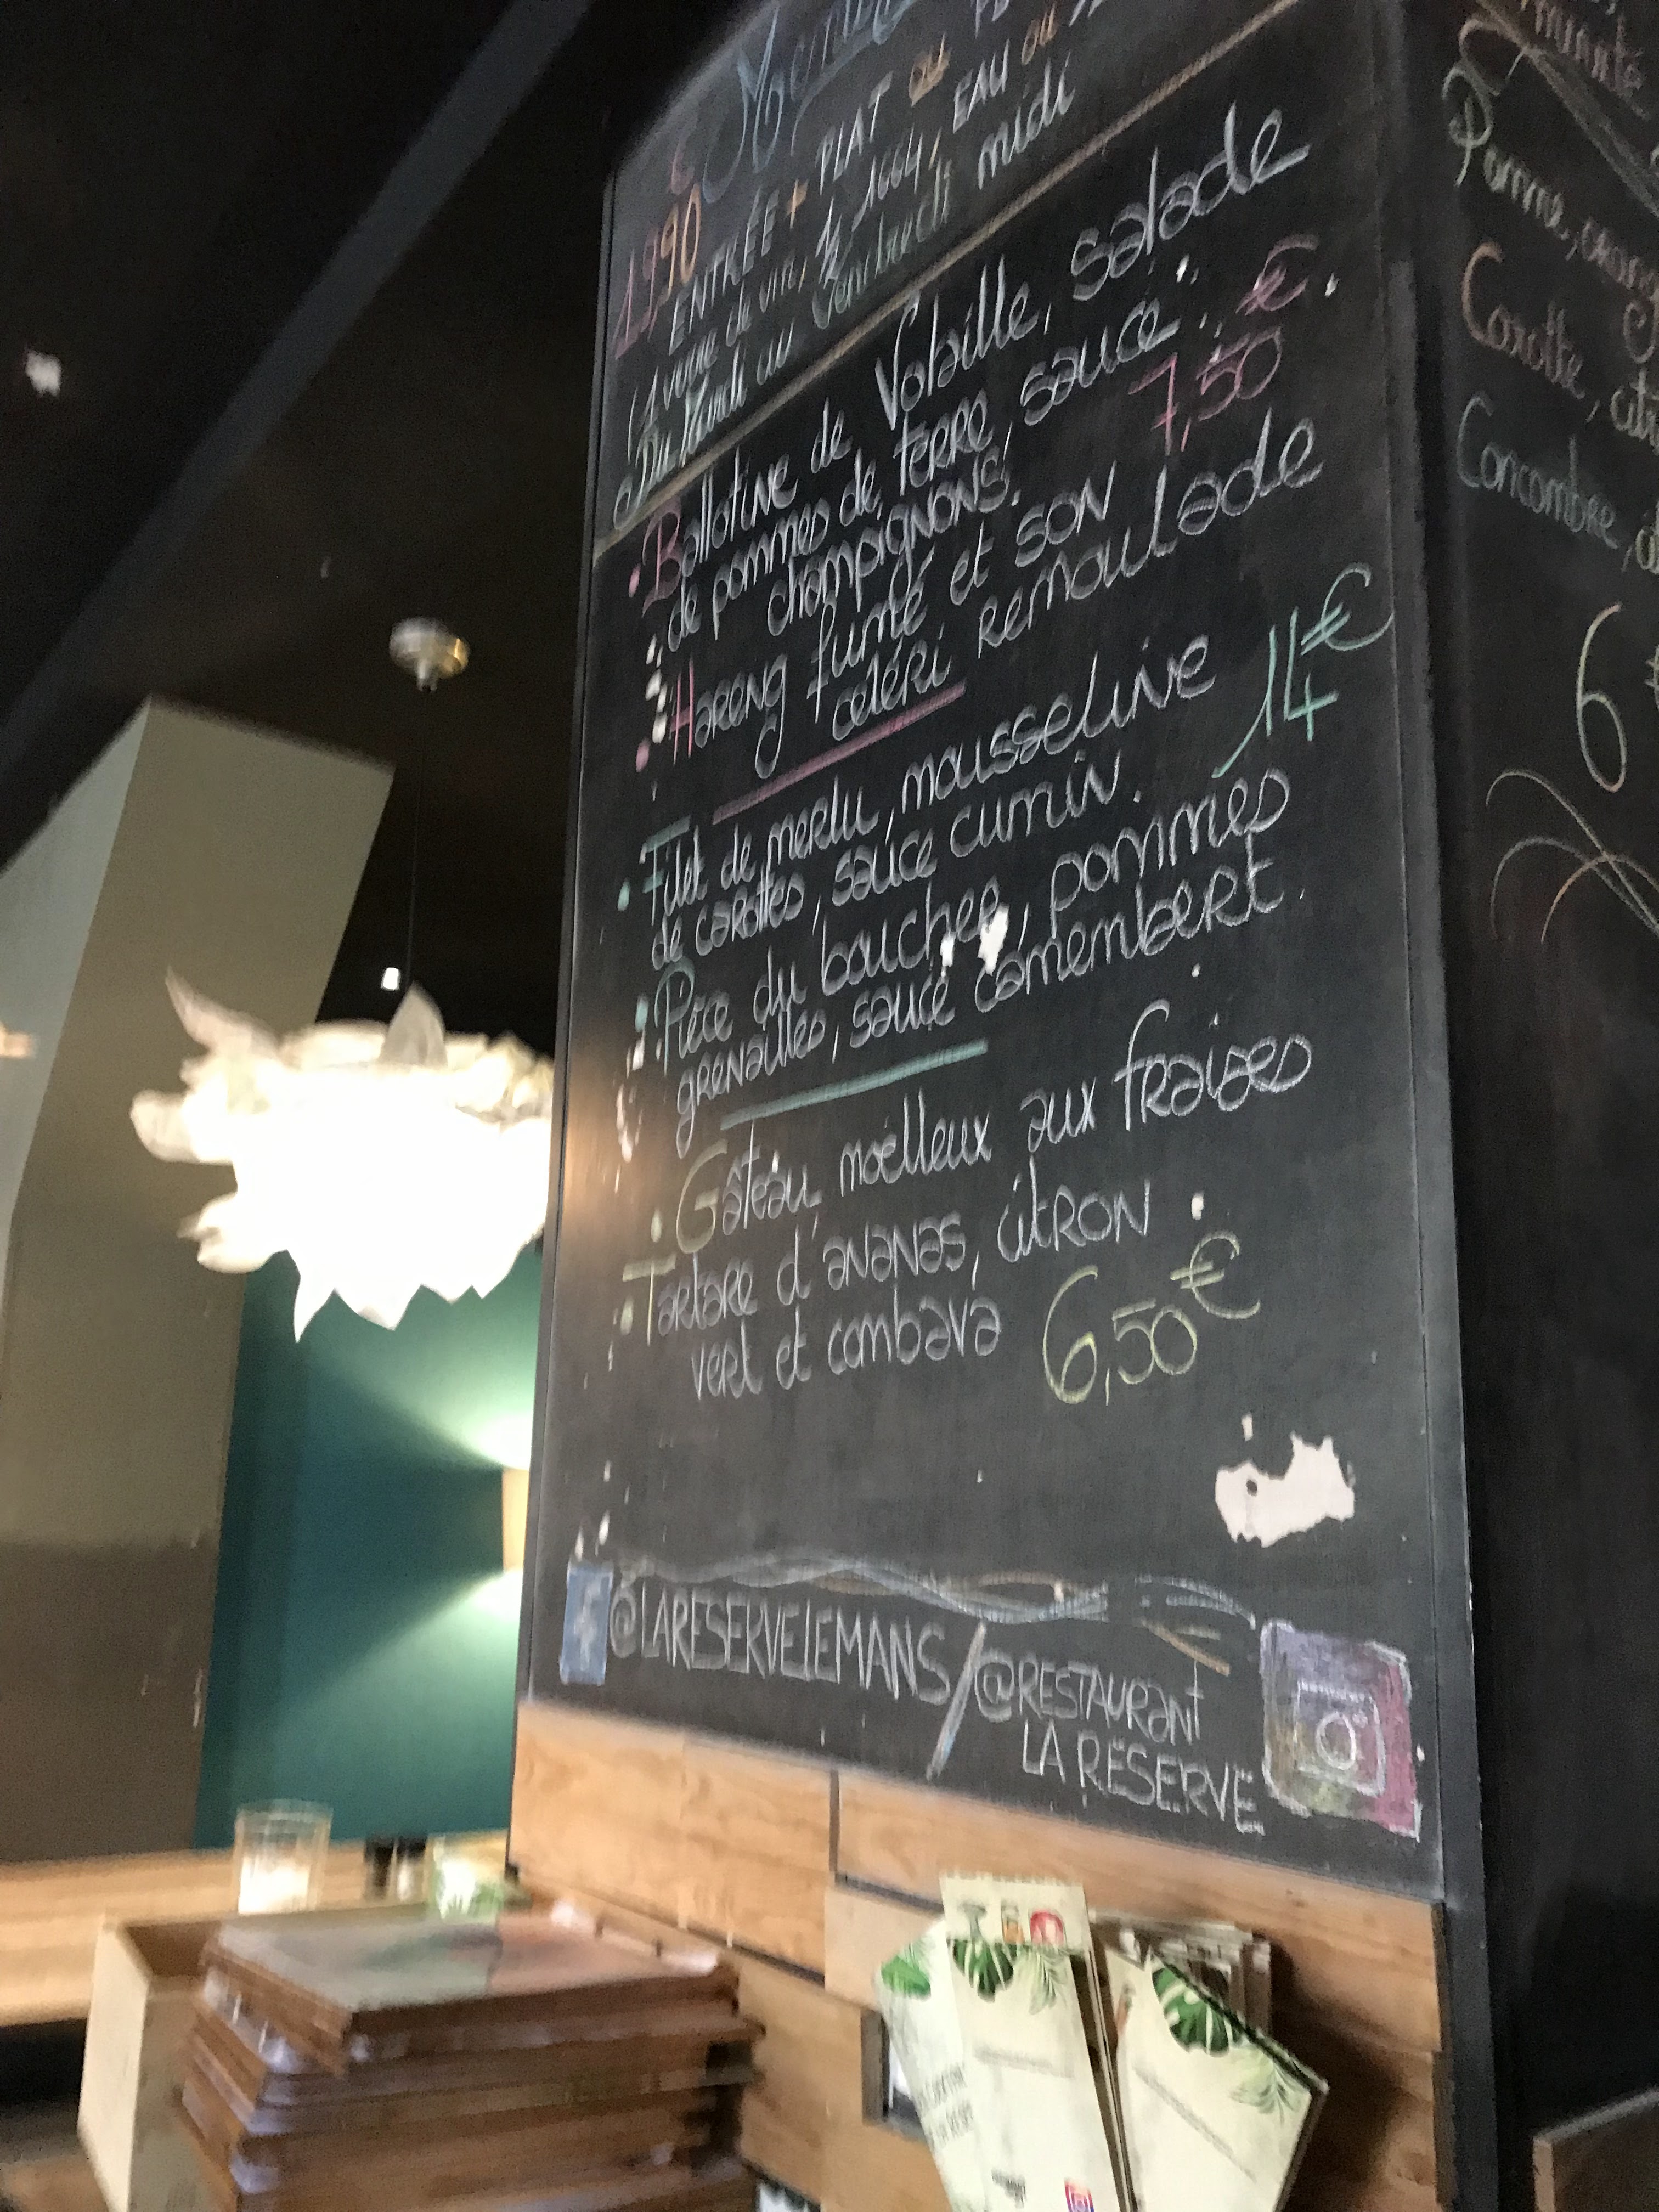 19,90
ENTRÉE + PLAT ou
(1 verre de vin, ½ 1664, EAU ou
Du Mardi au Vendredi midi
• Ballotine de Volaille, salade
de pommes de terre, sauce
champignons. 7,50 €
• Hareng fumé et son
céleri remoulade
• Filet de merlu, mousseline
de carottes, sauce cumin. 14€
• Pièce du boucher, pommes
grenailles, sauce camembert.
• Gâteau moëlleux aux fraises
• Tartare d'ananas, citron
vert et combava 6,50€
@LARESERVELEMANS/@RESTAURANT
LA RESERVE
Pomme, orang
Carotte, cit
Concombre,
6